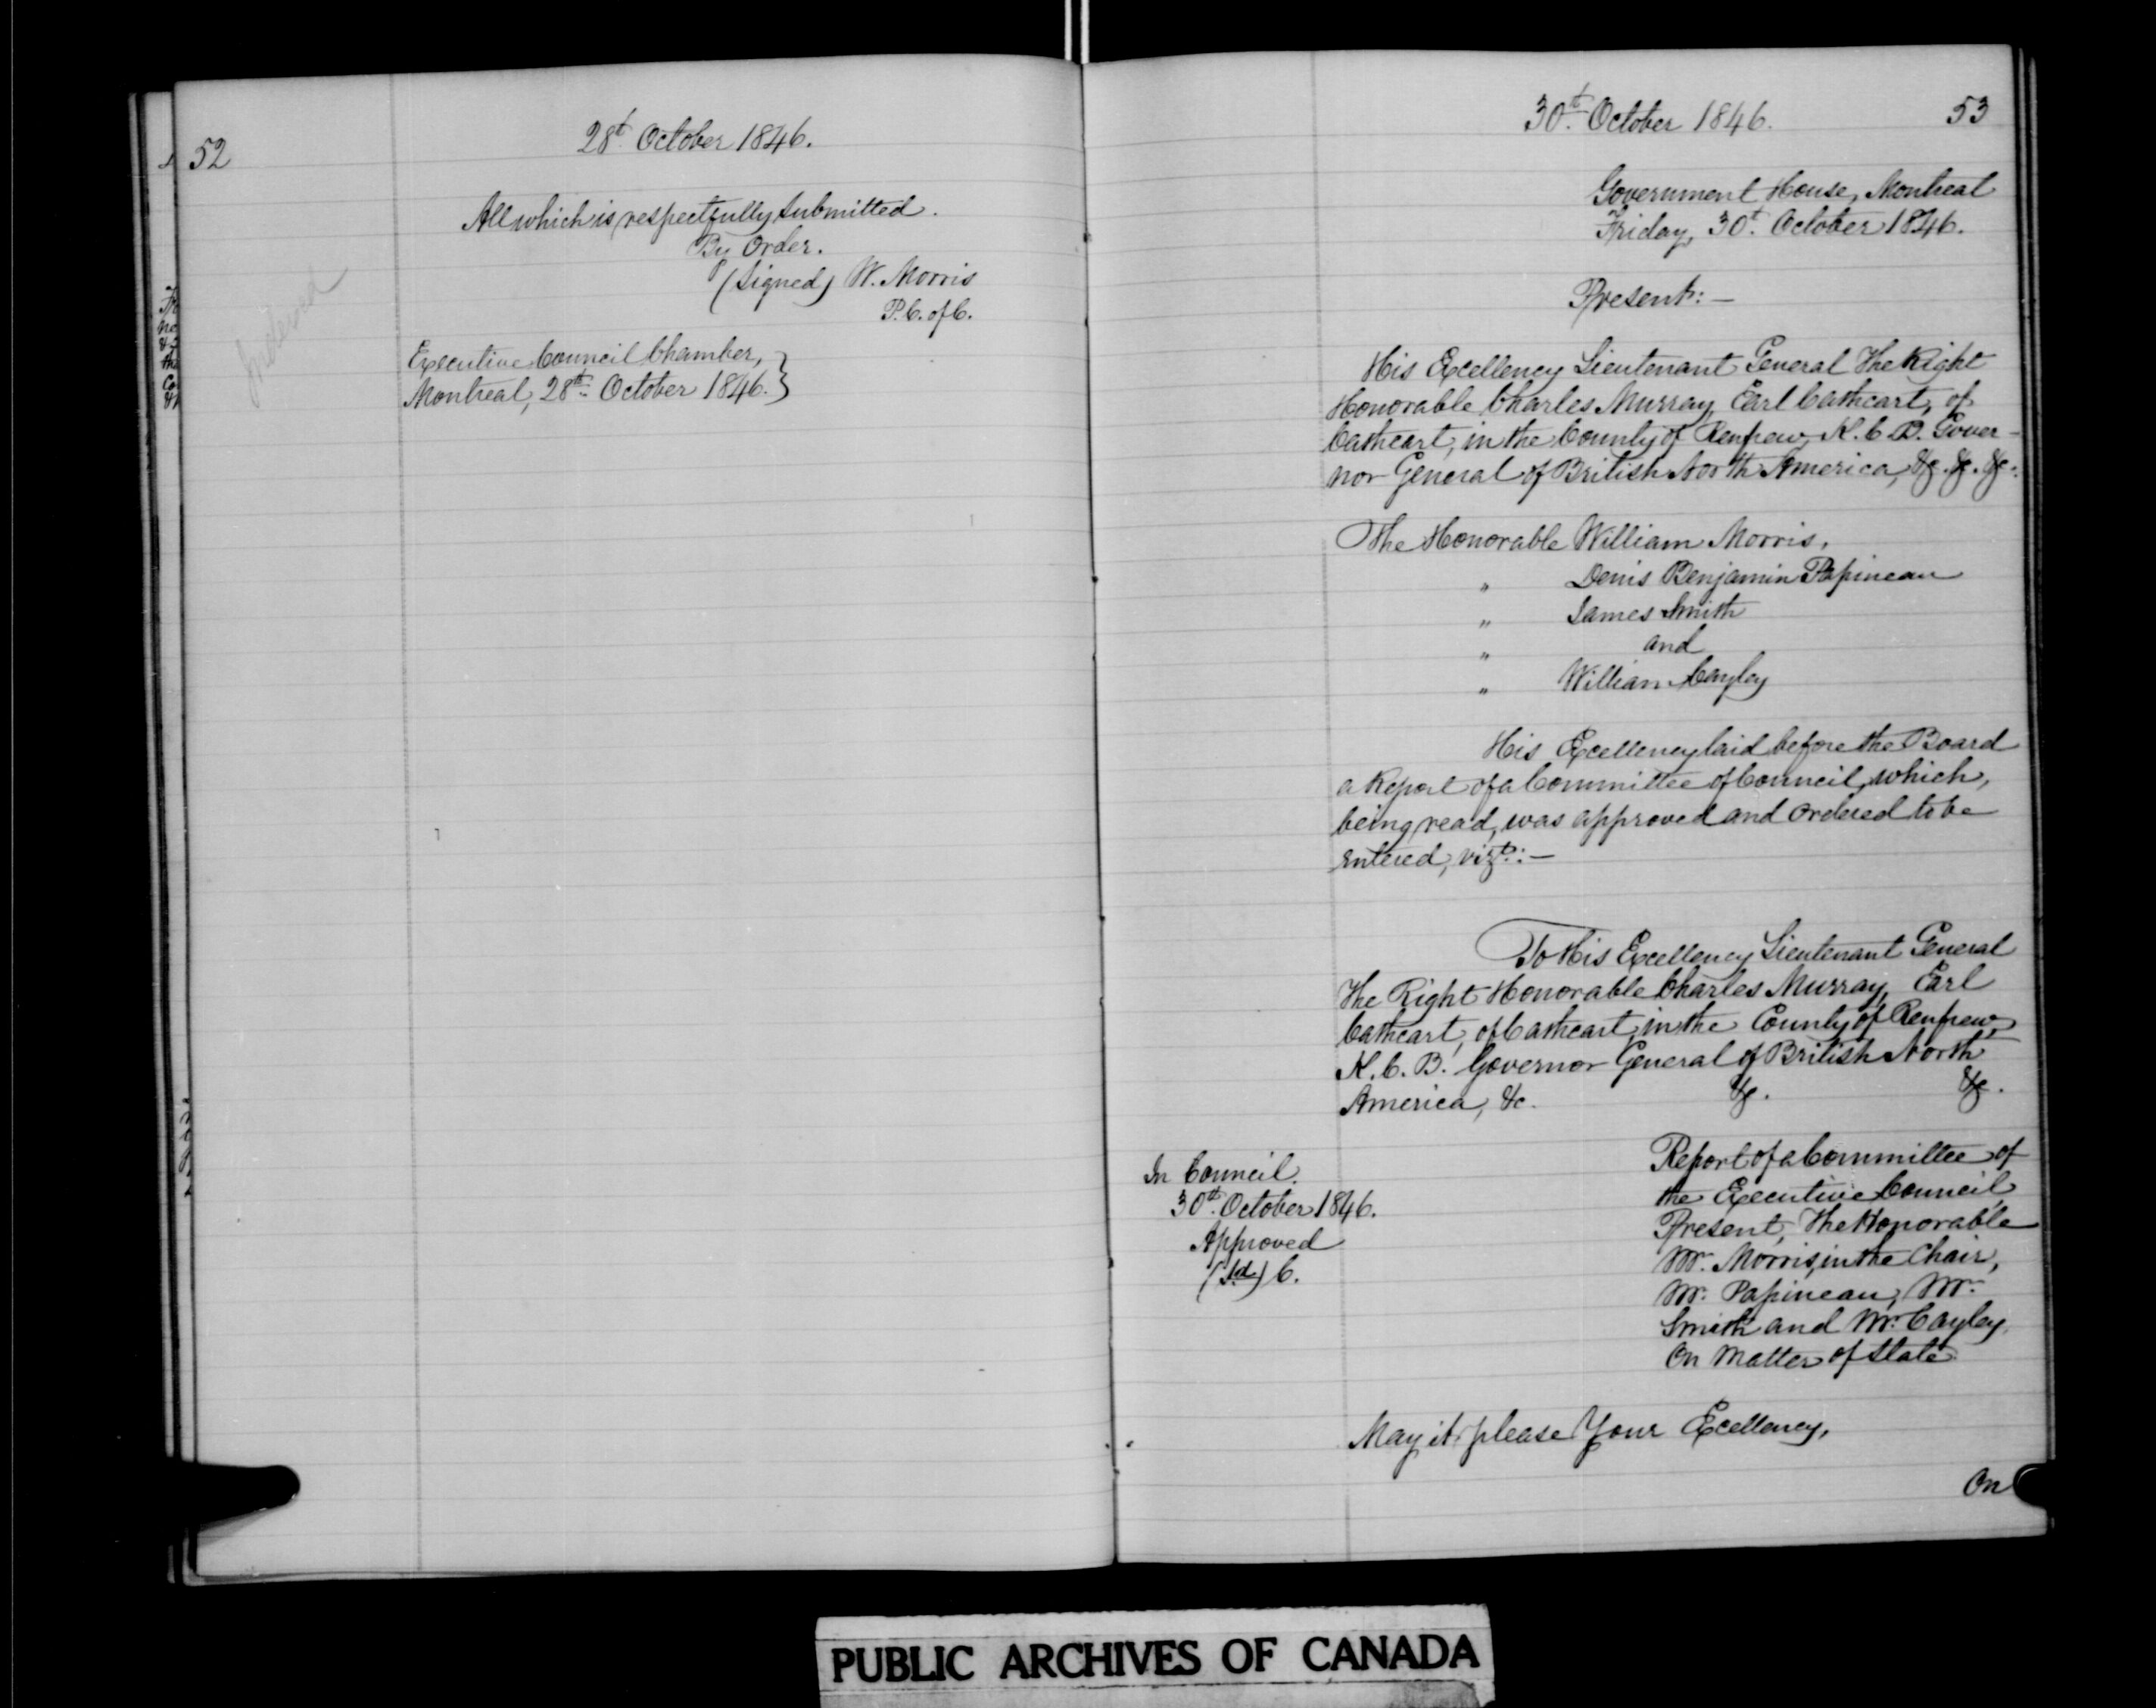 52
28t. October 1846.
All which is respectfully submitted.
By Order.
(Signed) W. Morris
P. C. of C.
Executive Council Chamber,
Montreal, 28th. October 1846.
Indexed
30t. October 1846.
53
Government House, Montreal
Friday, 30t. October 1846.
Present:—
His Excellency Lieutenant General The Right
Honorable Charles Murray, Earl Cathcart, of
Cathcart, in the County of Renfrew, K. C. B. Gover-
nor General of British North America, &c. &c. &c.
The Honorable William Morris,
" Denis Benjamin Papineau
" James Smith
" and
" William Cayley
His Excellency laid before the Board
a Report of a Committee of Council, which,
being read, was approved and ordered to be
entered, vizt:—
To His Excellency Lieutenant General
The Right Honorable Charles Murray, Earl
Cathcart, of Cathcart, in the County of Renfrew,
K. C. B. Governor General of British North
America, &c. &c. &c.
In Council.
30th. October 1846.
Approved
(Sd) C.
Report of a Committee of
the Executive Council,
Present, The Honorable
Mr. Morris, in the Chair,
Mr. Papineau, Mr.
Smith and Mr. Cayley,
On Matter of State
May it please Your Excellency,
On
PUBLIC ARCHIVES OF CANADA